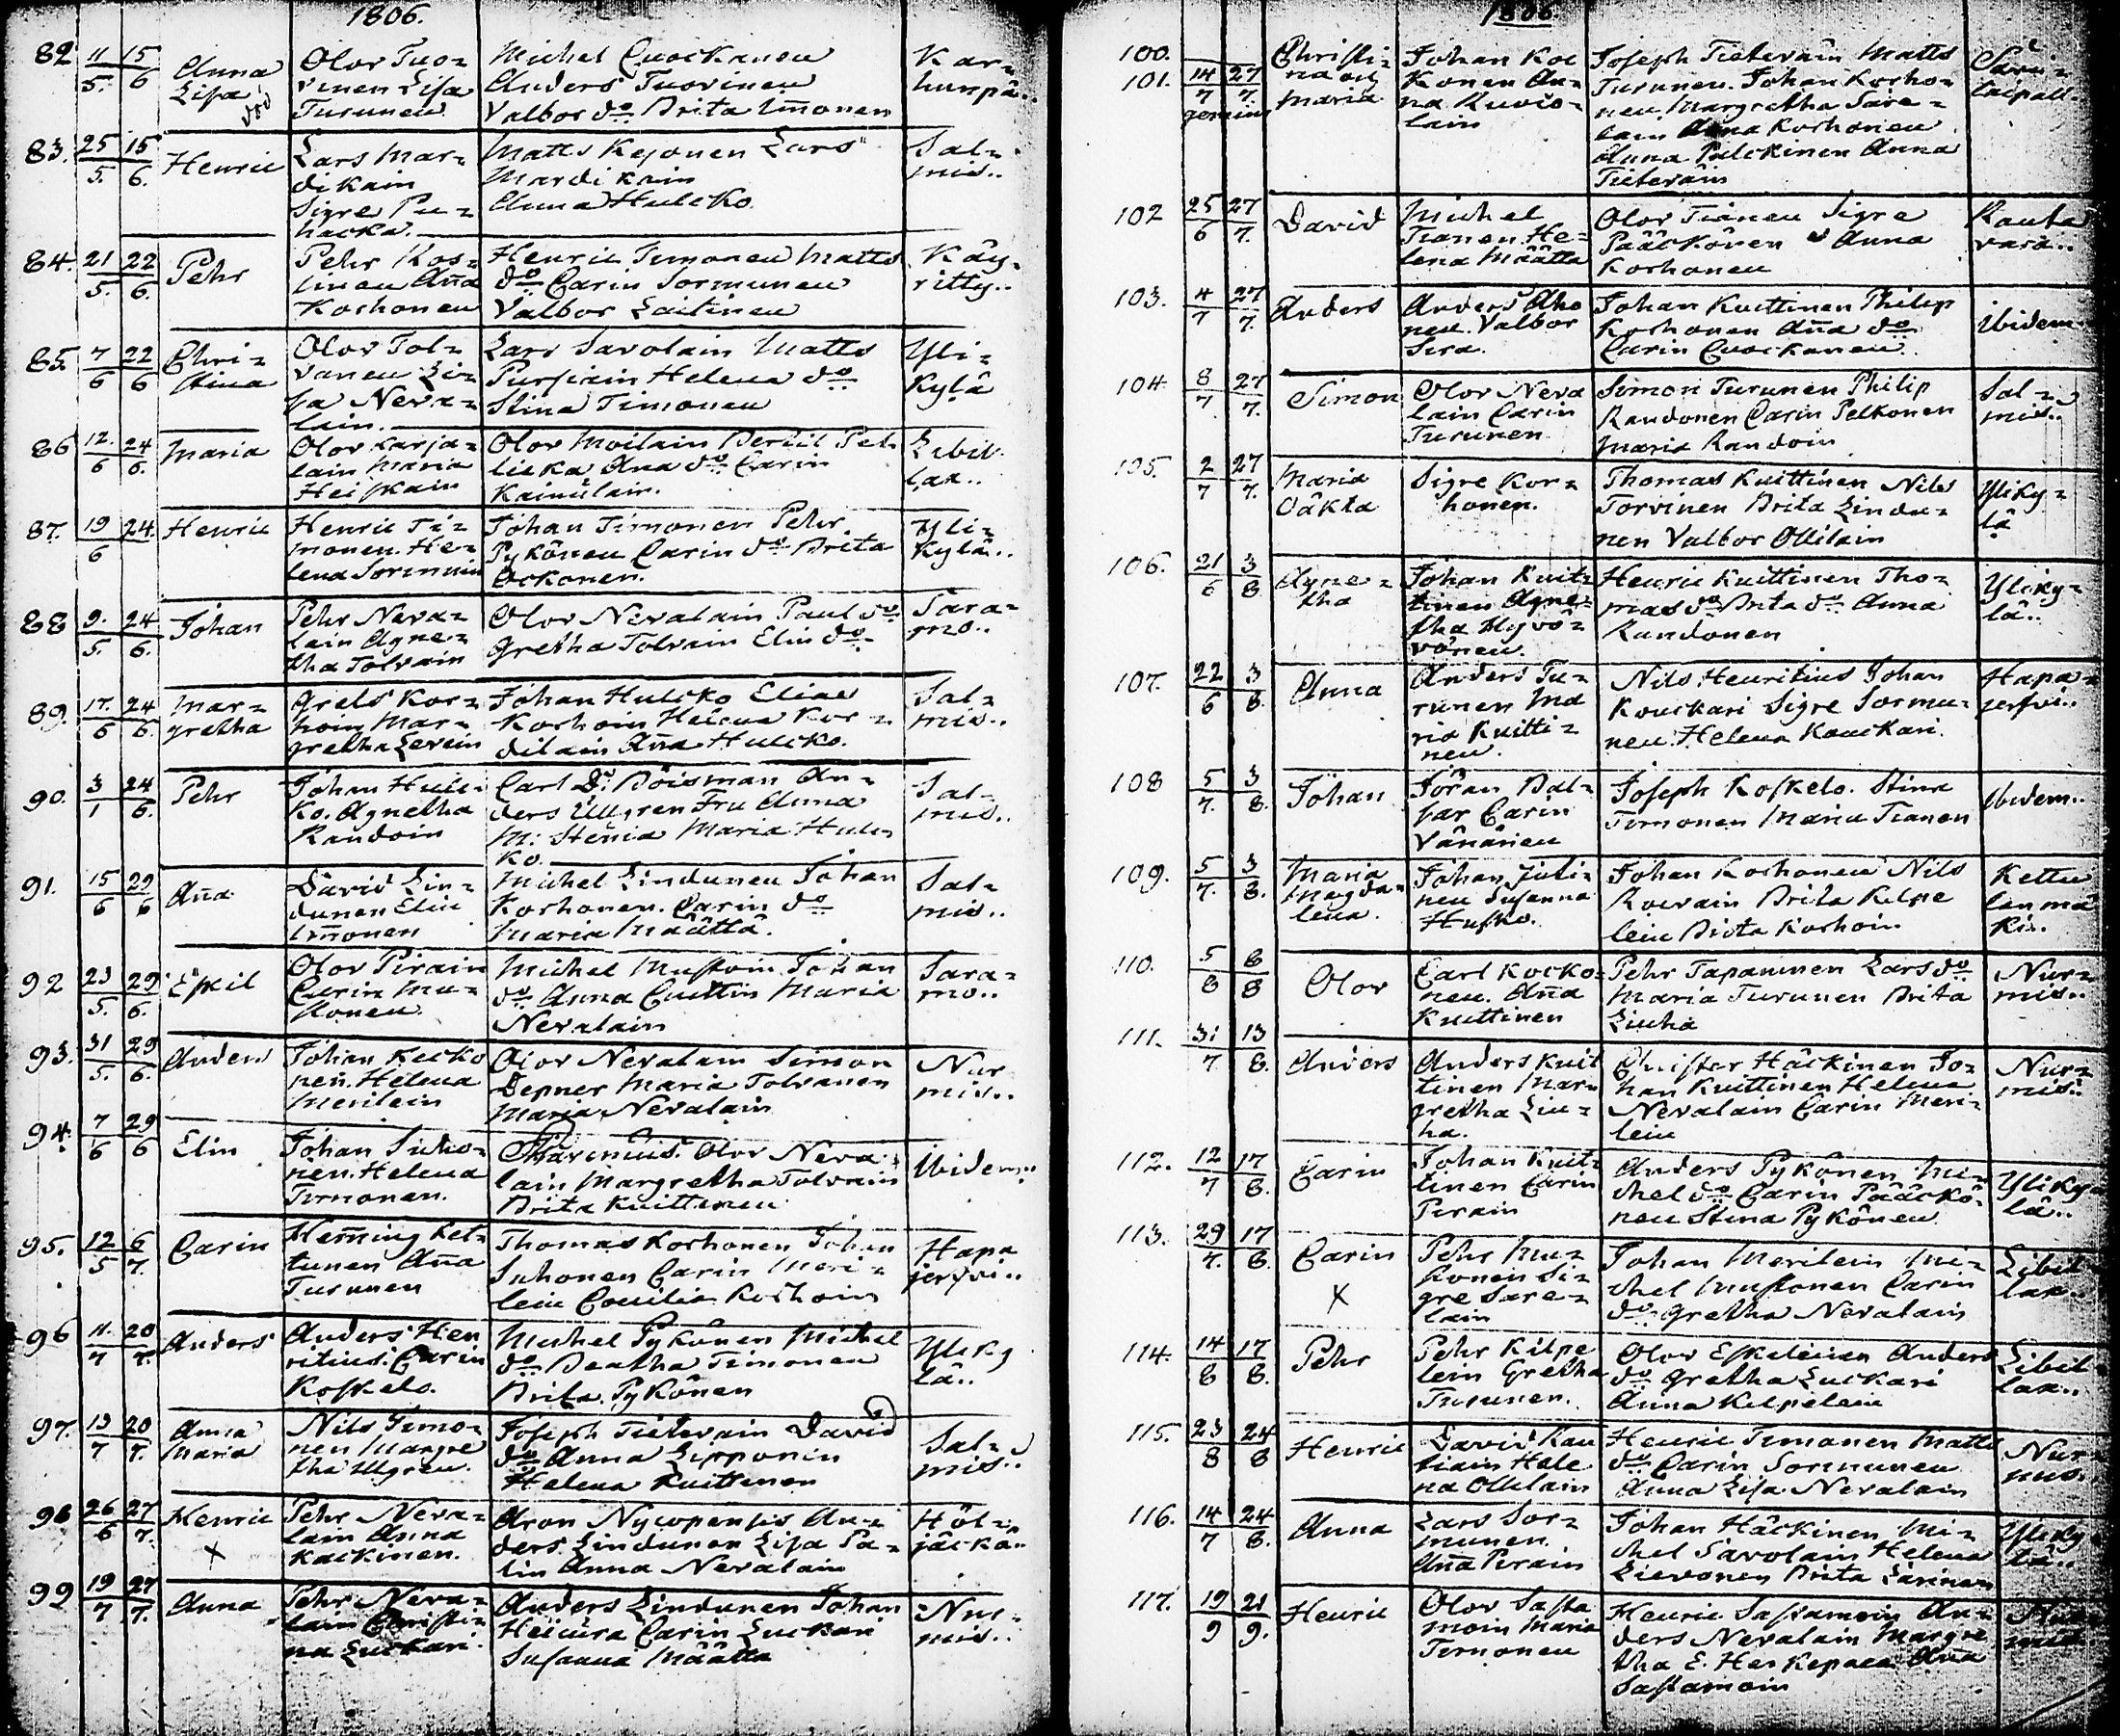 1806.
82 11/5. 15/6 Anna Lisa död
Olov Tuo-
vinen Lisa
Turunen
Michel Cuockanen
Anders Tuovinen
Valbor do Brita Immonen
Kar-
hunpä..
83. 25/5. 15/6. Henric
Lars Mar-
dikain
Sigre Pu-
hacka.
Matts Kejonen Lars
Mardikain
Anna Hulcko
Sal-
mis..
84. 21/5. 22/6. Pehr
Pehr Kos-
tinen Aña
Korhonen
Henric Timonen Matts
do Carin Sormunen
Valbor Laitinen
Käy-
ritty..
85. 7/6 22/6 Chri-
stina
Olov Tol-
vanen Li-
sa Neva-
lain.
Lars Savolain Matts
Pursiain Helena do
Stina Timonen
Yli-
kylä
86 12./6 24/6. Maria
Olov Karja-
lain Maria
Heiskain
Olov Moilain Bertil Pel-
licka Ana do Carin
Kainulain.
Libel-
lax..
87. 19/6 24. Henric
Henric Ti-
monen. He-
lena Sormunin
Johan Timonen Pehr
Pykönen Carin do Brita
Ockonen.
Yli-
kylä..
88 9./5. 24/6. Johan
Pehr Neva-
lain Agne-
tha Tolvain
Olov Nevalain Paul do
Gretha Tolvain Elin do
Sara-
mo..
89. 17./6 24/6. Mar-
gretha
Grels Kor-
hoin Mar-
gretha Levein
Johan Hulcko Elias
Korhoin Helena Kor-
dilain Aña Hulcko.
Sal-
mis..
90. 3/1 24/6. Pehr
Johan Hulc-
ko. Agnetha
Randoin
Carl D: Böisman An-
ders Ullgren Fru Anna
M: Stenia Maria Hulc-
ko.
Sal-
mis..
91. 15/6 29/6 Aña
David Lin-
dunen Elin
Immonen
Michel Lindunen Johan
Korhonen. Carin do
Maria Määttä.
Sal-
mis..
92 23/5. 29/6. Eskil
Olov Pirain
Carin Mu-
stonen
Michel Mustoin Johan
do Anna Cuittin Maria
Nevalain
Sara-
mo..
93. 31/5. 29/6. Anders
Johan Kecko
nen. Helena
Merilein
Olov Nevalain Simon
Depner Maria Tolvanen
Maria Nevalain
Nur
mis..
94. 7/6 29/6 Elin
Johan Suho-
nen. Helena
Timonen.
Olov Neva-
lain Margretha Tolvain
Brita Kuittinen
Ibidem..
95. 12/5 6/7. Carin
Hem̃ing Ket-
tunen Aña
Turunen
Thomas Korhonen Johan
Suhonen Carin Meri-
lein Caecilia Korhoin
Hapa
jerfvi..
96 11./7 20/7. Anders
Anders Hen
ritius. Carin
Koskelo.
Michel Pykönen Michel
do Beatha Timonen
Brita Pykönen
Yliky
lä..
97. 13/7 20/7. Anna
Maria
Nils Timo-
nen Margre
tha Ulgren.
Joseph Tietevain David
do Anna Lipponin
Helena Kuittinen
Sal-
mis..
98 26/6 27/7. Henric
x
Pehr Neva-
lain Anna
Kackinen.
Aron Nycopensis An-
ders Lindunen Lisa Pa-
lin Anna Nevalain
Höl-
jäckä..
99 19/7 27/7. Anna
Pehr Neva-
lain Christi-
na Luckari.
Anders Lindunen Johan
Heicura Carin Luckari
Susanna Määtta
Nur-
mis..
1806.
100.
101. 14/7 27/7. gemini
Christi-
na och
Maria
Johan Koc
konen An-
na Ruvio-
lain
Joseph Tieteväin Matts
Turunen. Johan Korho-
nen. Margretha Sare-
lain Anna Korhonen
Anna Pulckinen Anna
Tieteväin
Savi-
taipall.
102 25/6 27/7. David
Michel
Tranen He-
lena Määtta
Olov Tianen Sigre
Pääckönen Anna
Korhonen
Rauta
vara..
103. 4/7 27/7. Anders
Anders Aho
nen. Valbor
Sira.
Johan Kuittinen Philip
Korhonen Aña do
Carin Cuockanen.
Ibidem.
104. 8/7. 27/7. Simon
Olov Neva
lain Carin
Turunen
Simon Turunen Philip
Randonen Carin Pelkonen
Maria Randoin
Sal-
mis..
105. 2/7 27/7. Maria
Oäkta
Sigre Kor-
honen.
Thomas Kuittinen Nils
Torvinen Brita Lindu-
nen Valbor Ollilain
Yliky-
lä
106. 21/6 3/8. Agne-
tha
Johan Kuit-
tinen Agne-
tha Hyvö-
vönen.
Henric Kuittinen Tho-
mas do Brita do Anna
Randonen
Yliky-
lä..
107. 22/6 3/8. Anna
Anders Tu-
runen Ma
ria Kuitti-
nen.
Nils Henritius Johan
Kouckari Sigre Sormu-
nen. Helena Kouckari.
Hapa-
jerfvi..
108 5/7. 3/8. Johan
Jöran Bal-
sar Carin
Vänänen
Joseph Koskelo. Stina
Timonen Maria Tianen
Ibidem..
109. 5/7. 3/8. Maria
Magda-
lena.
Johan Juti-
nen Susanna
Husko.
Johan Korhonen Nils
Roevain Brita Kilpe
lein Brita Korhoin
Kettu
lanmä
ki..
110. 5/8 8/8 Olov
Carl Kocko-
nen. Aña
Kuittinen
Pehr Tapaninen Lars do
Maria Turunen Brita
Liuha
Nur-
mis..
111. 31/7 13/8. Anders
Anders Kuit
tinen Mar-
gretha Liu-
ha.
Christer Häckinen Jo-
han Kuittinen Helena
Nevalain Carin Meri-
lein
Nur-
mis..
112. 12/7 17/8. Carin
Johan Kuit-
tinen Carin
Pirain
Anders Pykönen Mi-
chel do Carin Pääckö-
nen Stina Pykönen
Yliky-
lä..
113. 29/7. 17/8. Carin
x
Pehr Mu-
stonen Si-
gre Sare-
lain
Johan Merilein Mi-
chel Mustonen Carin
do Gretha Nevalain
Libel-
lax..
114. 14/8 17/8. Pehr
Pehr Kilpe
lein Gretha
Turunen.
Olov Eskelinen Anders
do Gretha Luckari
Anna Kilpelein
Libel
lax..
115. 23/8 24/8 Henric
David Kau
tiain Hele
na Ollilain
Henric Timonen Matts
do Carin Sormunen
Anna Lisa Nevalain
Nur
mis.
116. 14/7 24/8. Anna
Lars Sor-
munen.
Aña Pirain
Johan Häckinen Mi-
chel Savolain Helena
Lievonen Brita Larinen
Yliky
lä..
117. 19/9 21/9. Henric
Olov Sasta
moin Maria
Timonen
Henric Sastamoin An-
ders Nevalain Margre
tha E. Herkepaea Aña
Sastamoin